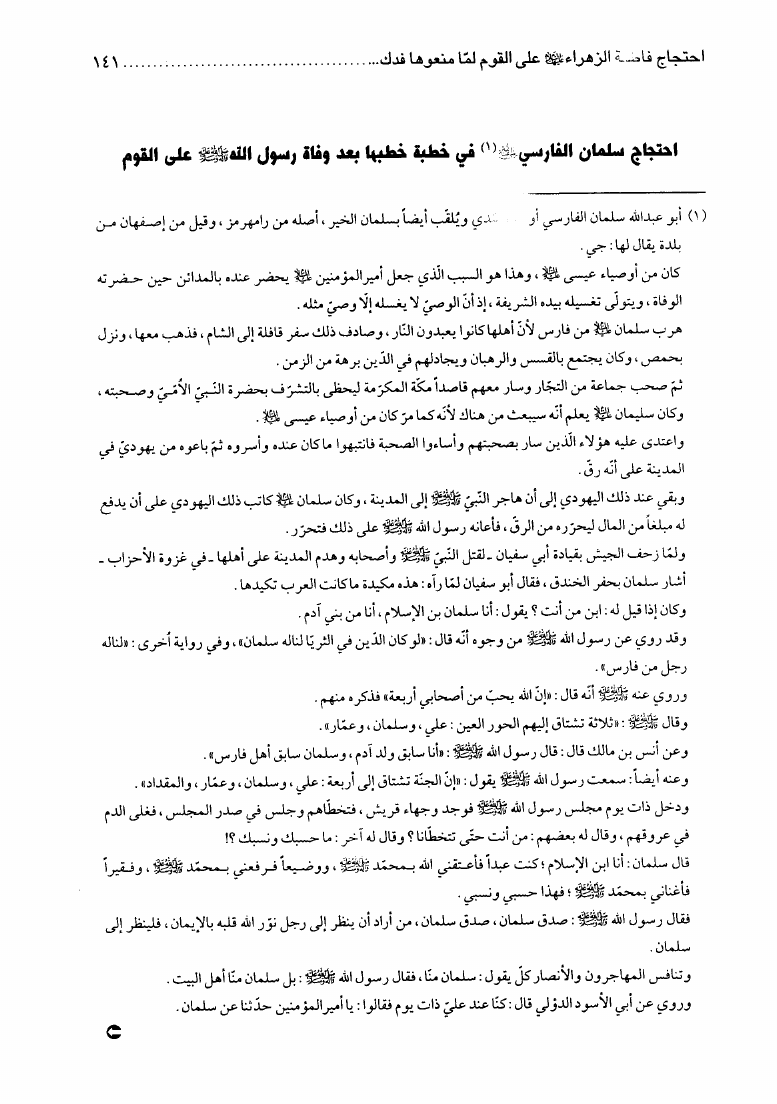 احتجاج فاطمة الزهراء عليها السلام على القوم لمّا منعوها فدك ... ١٤١
احتجاج سلمان الفارسي (١) في خطبة خطبها بعد وفاة رسول الله ﷺ على القوم
(١) أبو عبدالله سلمان الفارسي أو ويُلقّب أيضاً بسلمان الخير، أصله من رامهرمز، وقيل من إصفهان من
بلدة يقال لها: جي.
كان من أوصياء عيسى ﷷ، وهذا هو السبب الّذي جعل أميرالمؤمنين ﷷ يحضر عنده بالمدائن حين حضرته
الوفاة، ويتولّى تغسيله بيده الشريفة، إذ أنّ الوصيّ لا يغسله إلّا وصيّ مثله.
هرب سلمان ﷷ من فارس لأنّ أهلها كانوا يعبدون النّار، وصادف ذلك سفر قافلة إلى الشام، فذهب معها، ونزل
بحمص، وكان يجتمع بالقسس والرهبان ويجادلهم في الدّين برهة من الزمن.
ثمّ صحب جماعة من التجّار وسار معهم قاصداً مكّة المكرّمة ليحظى بالتشرّف بحضرة النّبيّ الأمّيّ وصحبته،
وكان سليمان ﷷ يعلم أنّه سيبعث من هناك لأنّه كما مرّ كان من أوصياء عيسى ﷷ.
واعتدى عليه هؤلاء الّذين سار بصحبتهم وأساءوا الصحبة فانتبهوا ما كان عنده وأسروه ثمّ باعوه من يهوديّ في
المدينة على أنّه رقّ.
وبقي عند ذلك اليهودي إلى أن هاجر النّبيّ ﷺ إلى المدينة، وكان سلمان ﷷ كاتب ذلك اليهودي على أن يدفع
له مبلغاً من المال ليحرّره من الرقّ، فأعانه رسول الله ﷺ على ذلك فتحرّر.
ولمّا زحف الجيش بقيادة أبي سفيان ـ لقتل النّبيّ ﷺ وأصحابه وهدم المدينة على أهلها ـ في غزوة الأحزاب ـ
أشار سلمان بحفر الخندق، فقال أبو سفيان لمّا رآه: هذه مكيدة ما كانت العرب تكيدها.
وكان إذا قيل له: ابن من أنت؟ يقول: أنا سلمان بن الإسلام، أنا من بني آدم.
وقد روي عن رسول الله ﷺ من وجوه أنّه قال: «لو كان الدّين في الثريّا لناله سلمان»، وفي رواية أخرى: «لناله
رجل من فارس».
وروي عنه ﷺ أنّه قال: «إنّ الله يحبّ من أصحابي أربعة» فذكره منهم.
وقال ﷺ: «ثلاثة تشتاق إليهم الحور العين: علي، وسلمان، وعمّار».
وعن أنس بن مالك قال: قال رسول الله ﷺ: «أنا سابق ولد آدم، وسلمان سابق أهل فارس».
وعنه أيضاً: سمعت رسول الله ﷺ يقول: «إنّ الجنّة تشتاق إلى أربعة: علي، وسلمان، وعمّار، والمقداد».
ودخل ذات يوم مجلس رسول الله ﷺ فوجد وجهاء قريش، فتخطّاهم وجلس في صدر المجلس، فغلى الدم
في عروقهم، وقال له بعضهم: من أنت حتّى تتخطّانا؟ وقال له آخر: ما حسبك ونسبك؟!
قال سلمان: أنا ابن الإسلام؛ كنت عبداً فأعتقني الله بمحمّد ﷺ، ووضيعاً فرفعني بمحمّد ﷺ، وفقيراً
فأغناني بمحمّد ﷺ؛ فهذا حسبي ونسبي.
فقال رسول الله ﷺ: صدق سلمان، صدق سلمان، من أراد أن ينظر إلى رجل نوّر الله قلبه بالإيمان، فلينظر إلى
سلمان.
وتنافس المهاجرون والأنصار كلّ يقول: سلمان منّا، فقال رسول الله ﷺ: بل سلمان منّا أهل البيت.
وروي عن أبي الأسود الدؤلي قال: كنّا عند عليّ ذات يوم فقالوا: يا أميرالمؤمنين حدّثنا عن سلمان.